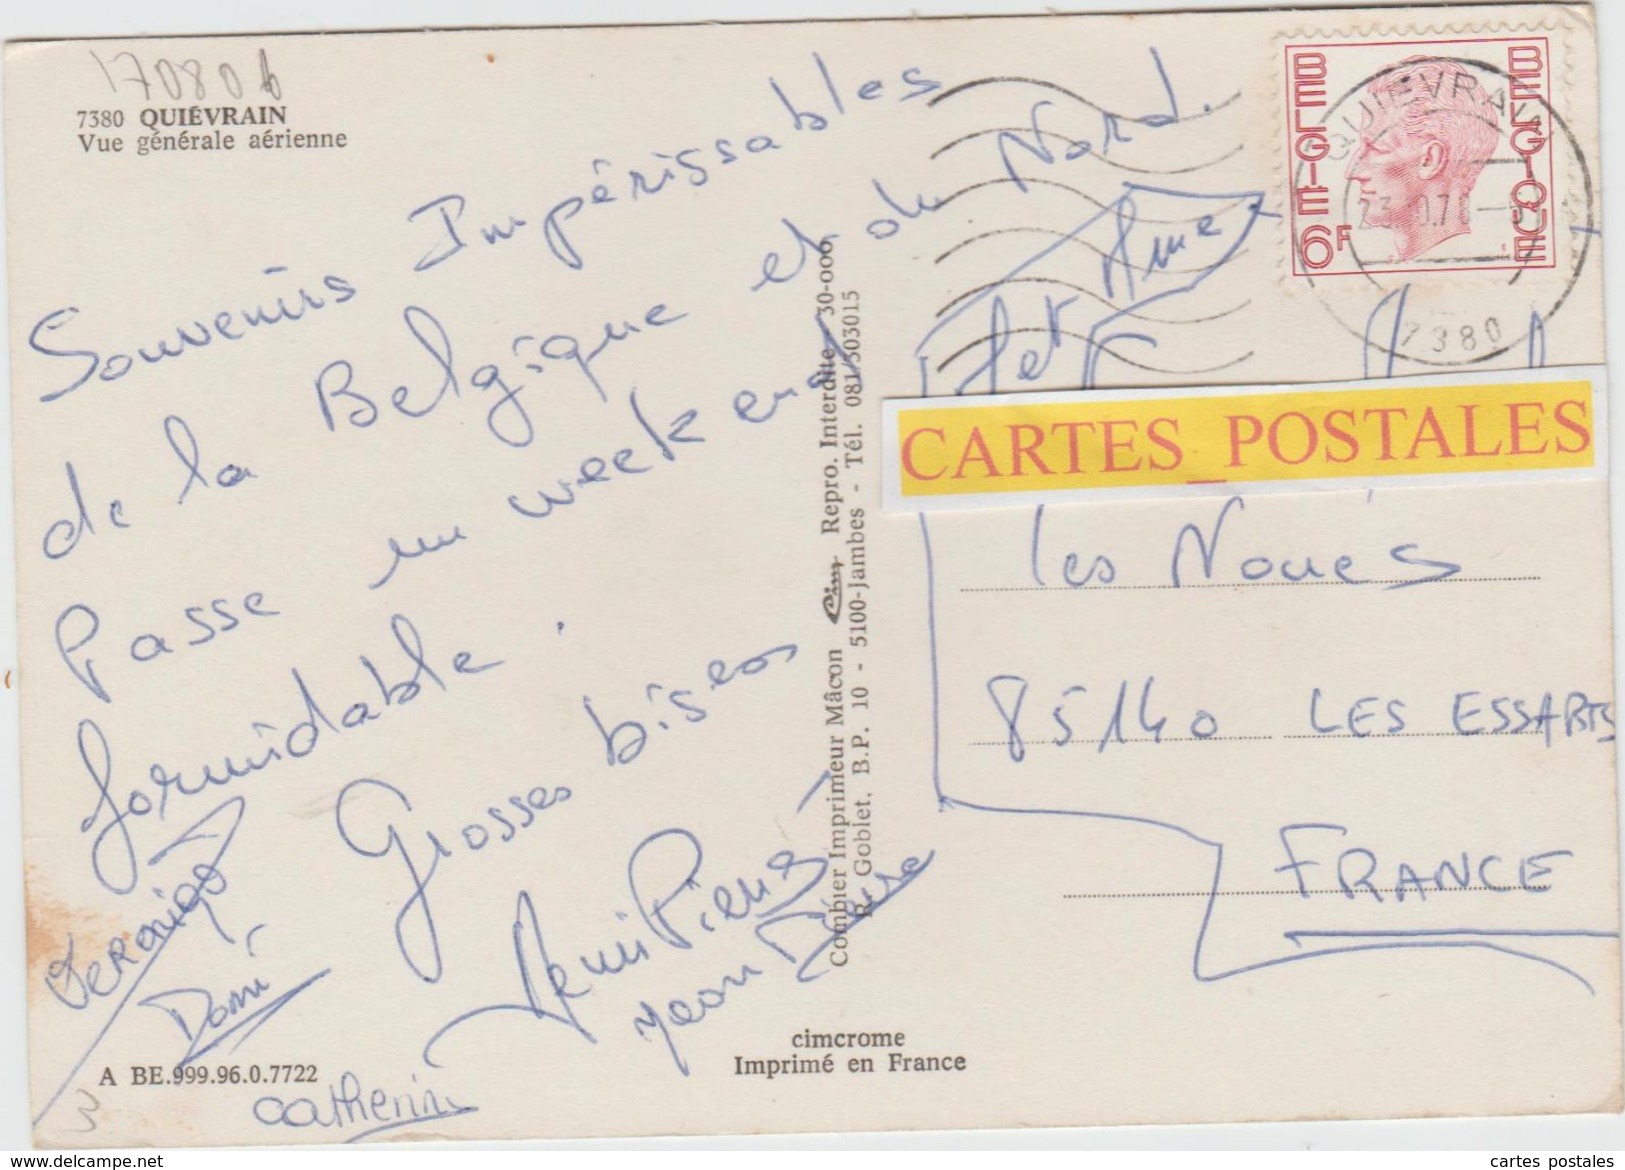 170806
7380 QUIÉVRAIN
Vue générale aérienne
Souvenirs Impérissables
de la Belgique et du Nord.
Passe un week end
formidable.
Grosses bises
Veronique
Domi
Catherine
Jean Pierre
A BE.999.96.0.7722
cimcrome
Imprimé en France
Combier Imprimeur Mâcon Cim Repro. Interdite 30-000
R. Goblet, B.P. 10 - 5100-Jambes - Tél. 081/303015
BELGIE
BELGIQUE
6F
QUIEVRAIN
7380
M et Mme
CARTES_POSTALES
les Noués
85140 LES ESSARTS
FRANCE
delcampe.net
cartes postales